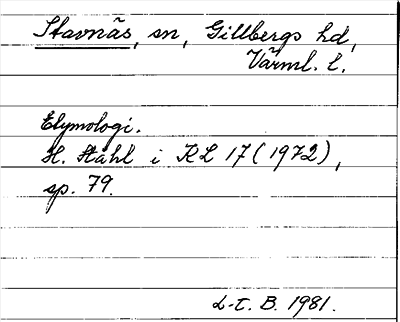 Stavnäs, sn, Gillbergs hd,
Värml. l.
Etymologi.
H. Ståhl i KL 17 (1972),
sp. 79.
L-t. B. 1981.